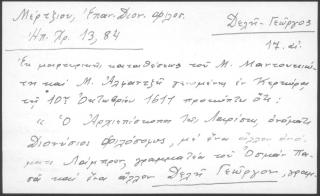 Μέρτζιου, Ἐπαν. Διον. Φιλοσ.
Δελῆ-Γεῶργος
Ἠπ. Χρ. 13, 84
17. αἰ.
Ἐκ μαρτυρικῆς καταθέσεως τοῦ Μ.
τη καὶ Μ. γενομένη ἐν Κερκύρᾳ
τῇ 10ῃ Ὀκτωβρίου 1611 προκύπτει ὅτι :
« Ὁ Ἀρχιεπίσκοπος τῆς Λαρίσης, ὀνόματι
Διονύσιος Φιλόσοφος, μὲ ἕνα ἄλλον ὀνό-
ματι Λάμπρον, γραμματέα τοῦ Ὀσμὰν Πα-
σᾶ καὶ ἕνα ἄλλον Δελῆ Γεῶργον, γραμ-